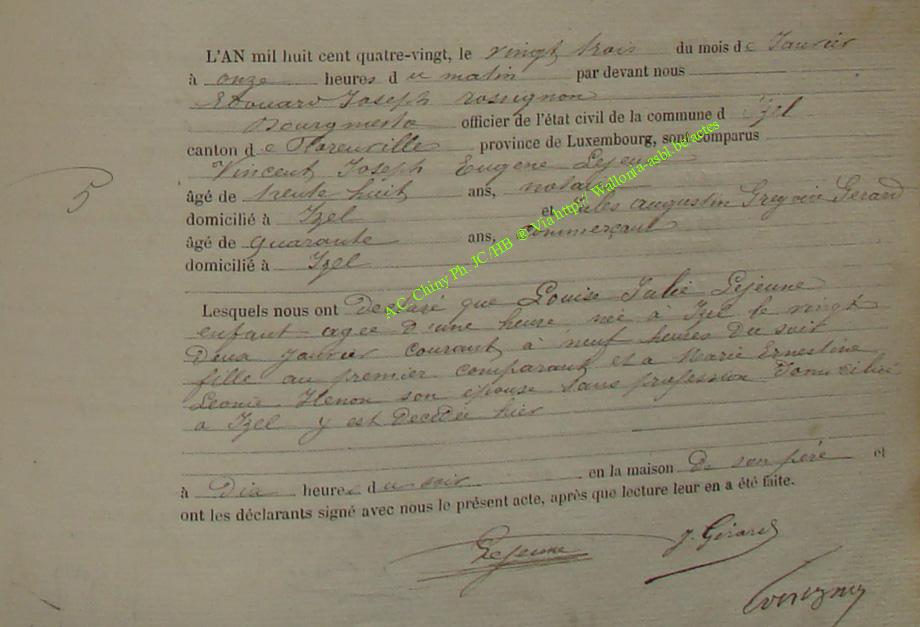 L'AN mil huit cent quatre-vingt, le vingt trois du mois de Janvier
à onze heures du matin par devant nous
Edouard Joseph rossignon
Bourgmestre officier de l'état civil de la commune d Izel
canton de Florenville province de Luxembourg, sont comparus
Vincent Joseph Eugène Lejeune
âgé de trente huit ans, notaire
domicilié à Izel et Jules augustin Gregoire Gerard
âgé de quarante ans, commerçant
domicilié à Izel
5
Lesquels nous ont déclaré que Louise Julie Lejeune
enfant agée d'une heure, née à Izel le vingt
deux Janvier courant à neuf heures du soir
fille au premier comparant et à Marie Ernestine
Leonie Henon son épouse sans profession domiciliée
à Izel y est décédée hier
à dix heures du soir en la maison de son père et
ont les déclarants signé avec nous le présent acte, après que lecture leur en a été faite.
Lejeune J. Gérard
A.C. Chiny Ph. JC/HB ®Via http// Wallonia-asbl.be actes